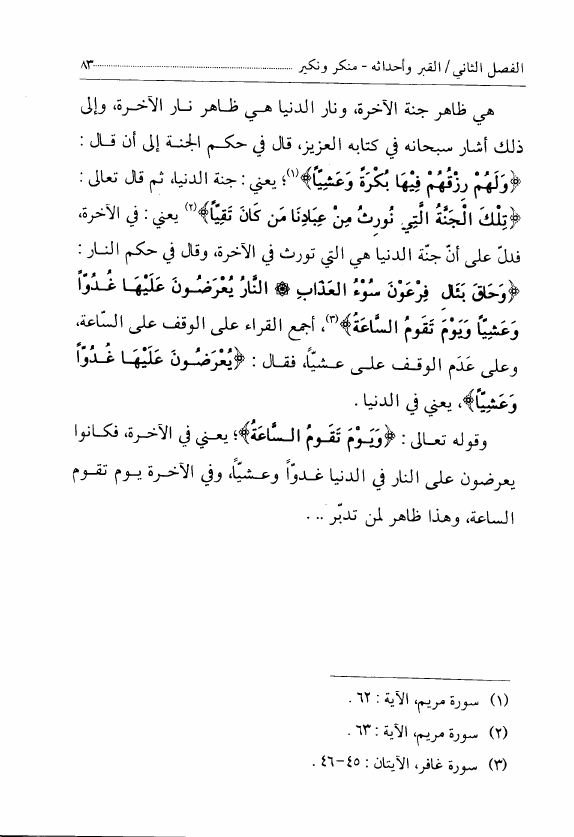 الفصل الثاني/ القبر وأحداثه - منكر ونكير ........................................ ٨٣
هي ظاهر جنة الآخرة، ونار الدنيا هي ظاهر نار الآخرة، وإلى
ذلك أشار سبحانه في كتابه العزيز، قال في حكم الجنة إلى أن قال :
﴿وَلَهُمْ رِزْقُهُمْ فِيهَا بُكْرَةً وَعَشِيّاً﴾(١)؛ يعني : جنة الدنيا، ثم قال تعالى :
﴿تِلْكَ الْجَنَّةُ الَّتِي نُورِثُ مِنْ عِبَادِنَا مَن كَانَ تَقِيّاً﴾(٢) يعني : في الآخرة،
فدلّ على أنّ جنّة الدنيا هي التي تورث في الآخرة، وقال في حكم النار :
﴿وَحَاقَ بَئَالِ فِرْعَوْنَ سُوْءُ العَذَابِ ۞ النَّارُ يُعْرَضُونَ عَلَيْهَا غُدُوّاً
وَعَشِيّاً وَيَوْمَ تَقُومُ السَّاعَةُ﴾(٣)، أجمع القراء على الوقف على السّاعة،
وعلى عَدَم الوقف على عشيّاً، فقال : ﴿يُعْرَضُونَ عَلَيْهَا غُدُوّاً
وَعَشِيّاً﴾، يعني في الدنيا .
وقوله تعالى : ﴿وَيَوْمَ تَقُومُ السَّاعَةُ﴾؛ يعني في الآخرة، فكانوا
يعرضون على النار في الدنيا غدوّاً وعشيّاً، وفي الآخرة يوم تقوم
الساعة، وهذا ظاهر لمن تدبّر .. .
(١) سورة مريم، الآية : ٦٢ .
(٢) سورة مريم، الآية : ٦٣ .
(٣) سورة غافر، الآيتان : ٤٥-٤٦ .